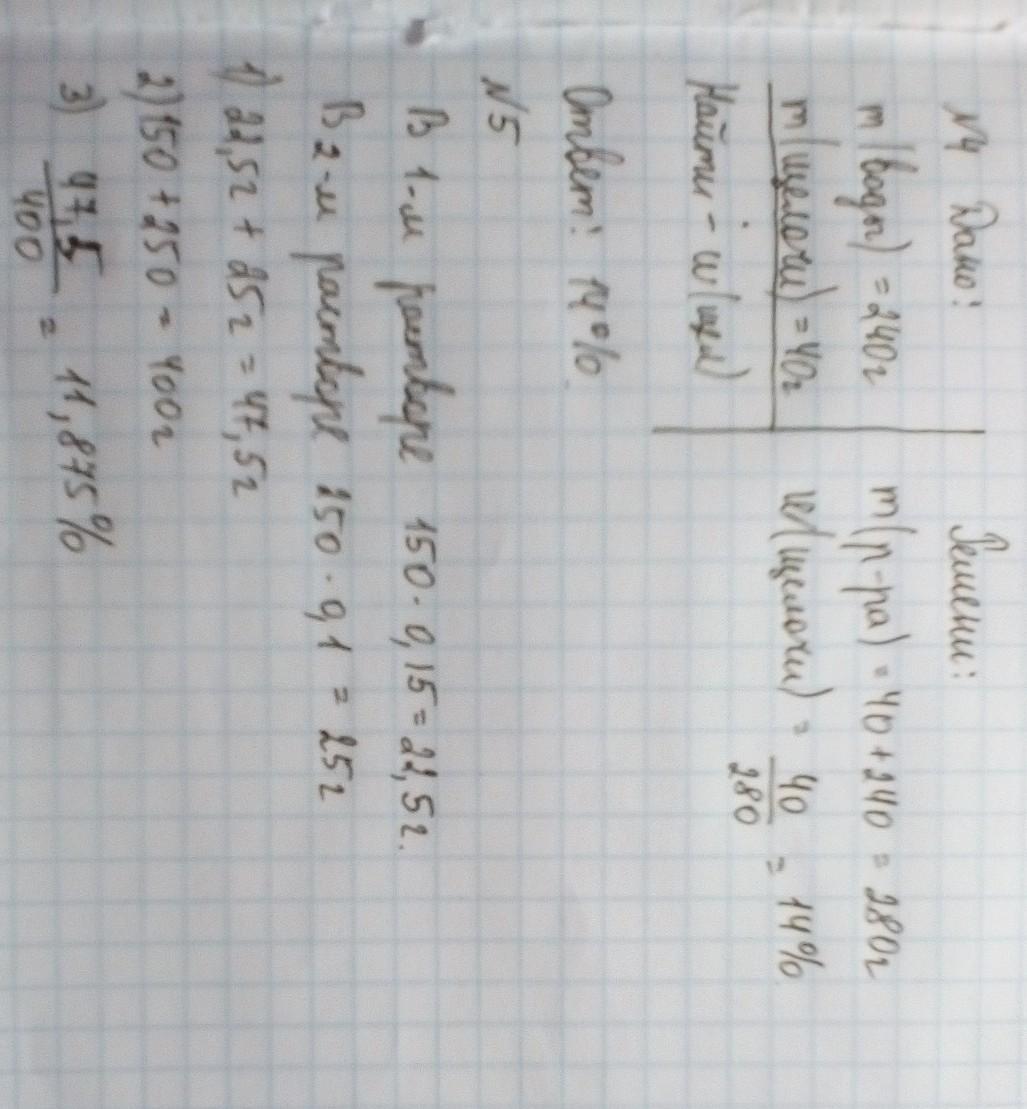 N4 Дано:
m(воды) = 240г
m(щелочи) = 40г
Найти - w(щел)
Решени:
m(р-ра) = 40 + 240 = 280г
w(щелочи) = 40/280 = 14%
Ответ: 14%
N5
В 1-м растворе 150 · 0,15 = 22,5г.
В 2-м растворе 250 · 0,1 = 25г
1) 22,5г + 25г = 47,5г
2) 150 + 250 = 400г
3) 47,5/400 = 11,875%